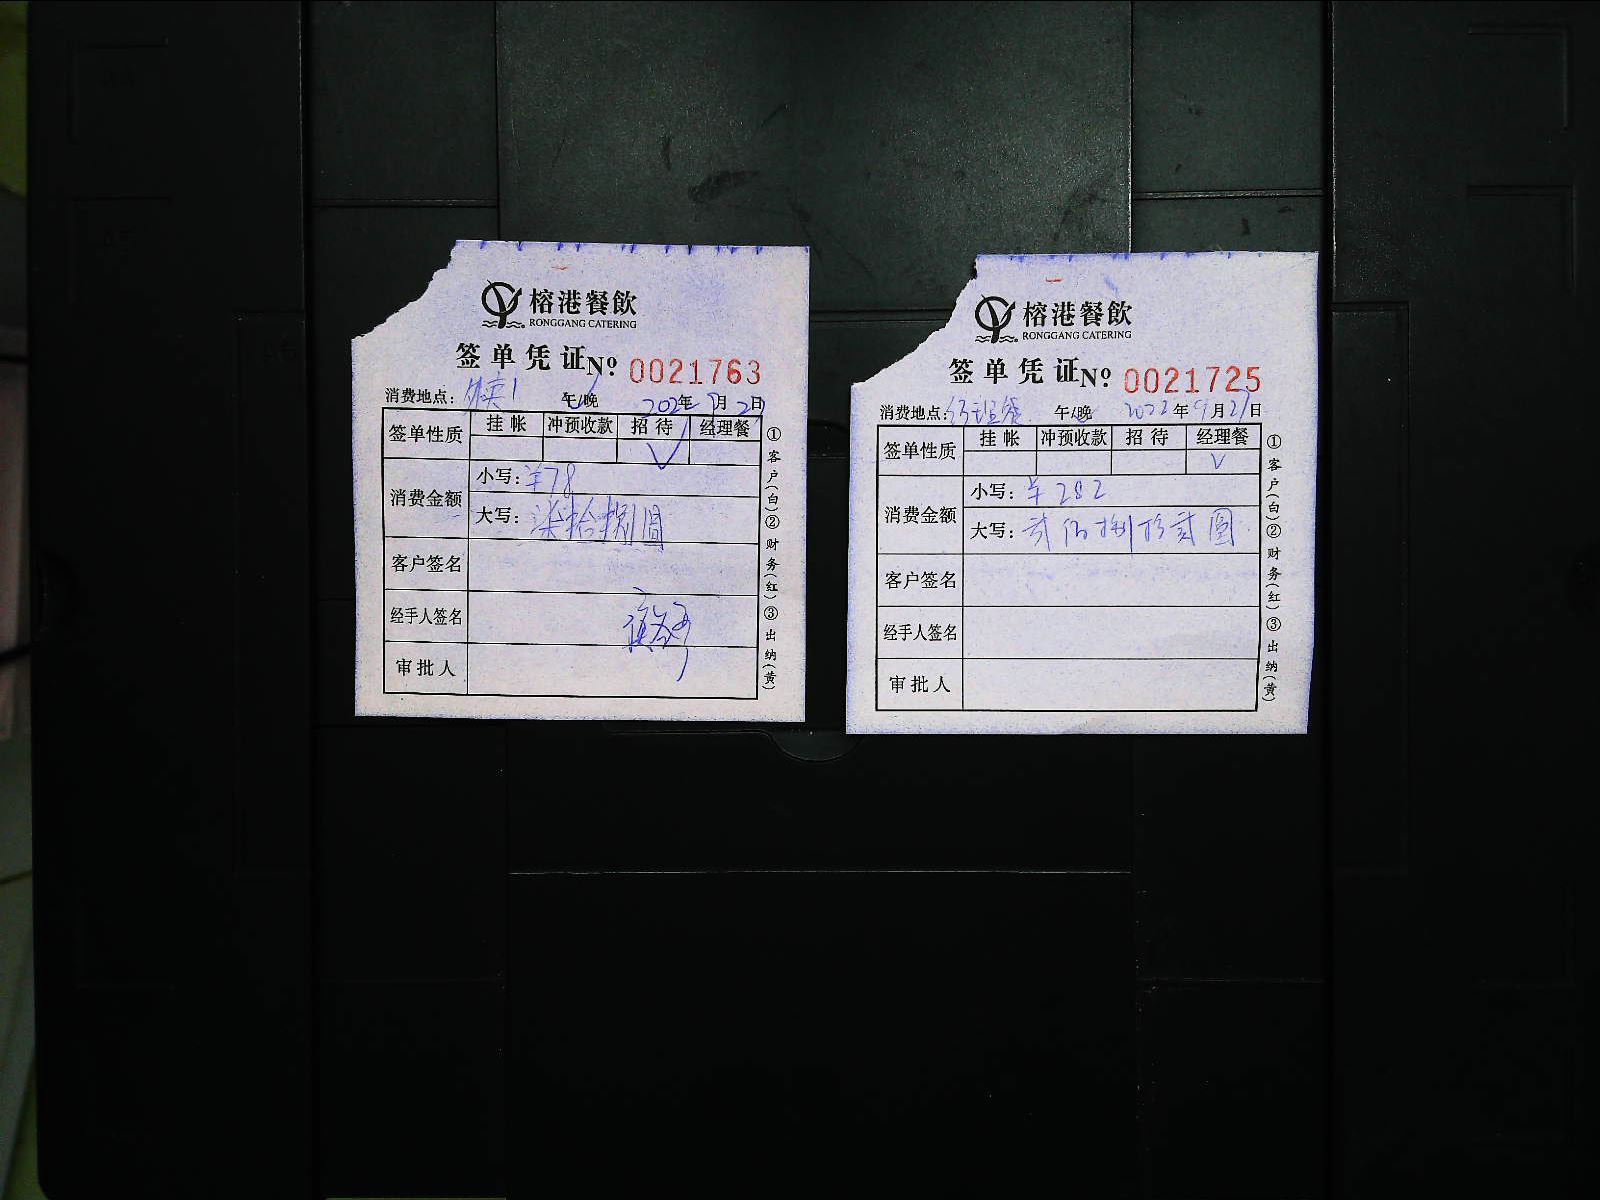 榕港餐飲
RONGGANG CATERING
签单凭证 No 0021763
消费地点：外卖1 午/晚 2022年9月21日
签单性质 挂帐 冲预收款 招待 经理餐
√
消费金额 小写：¥78
大写：柒拾捌圆
客户签名
经手人签名
审批人
①客户(白)②财务(红)③出纳(黄)
榕港餐飲
RONGGANG CATERING
签单凭证 No 0021725
消费地点：经理餐 午/晚 2022年9月21日
签单性质 挂帐 冲预收款 招待 经理餐
√
消费金额 小写：¥282
大写：贰佰捌拾贰圆
客户签名
经手人签名
审批人
①客户(白)②财务(红)③出纳(黄)